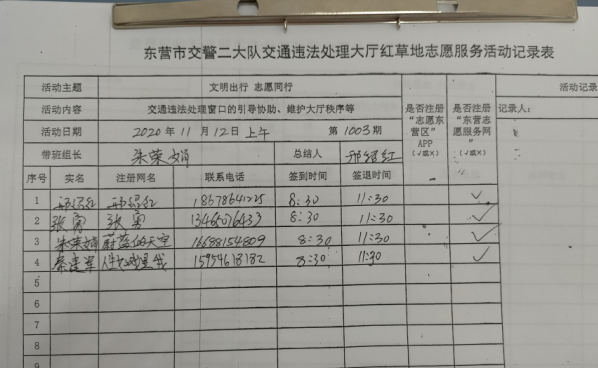 东营市交警二大队交通违法处理大厅红草地志愿服务活动记录表
活动主题 文明出行 志愿同行 活动记录
活动内容 交通违法处理窗口的引导协助、维护大厅秩序等 是否注册“志愿东营区”APP(√或×) 是否注册“东营志愿服务网”(√或×) 记录人:
活动日期 2020年11月12日上午 第1003期
带班组长 朱荣娟 总结人 邢绍红
序号 实名 注册网名 联系电话 签到时间 签退时间
1 邢绍红 邢绍红 18678641225 8:30 11:30 ✓
2 张勇 张勇 13465076433 8:30 11:30 ✓
3 朱荣娟 蔚蓝的天空 16688154809 8:30 11:30 ✓
4 秦建军 15954618182 8:30 11:30 ✓
5
6
7
8
9